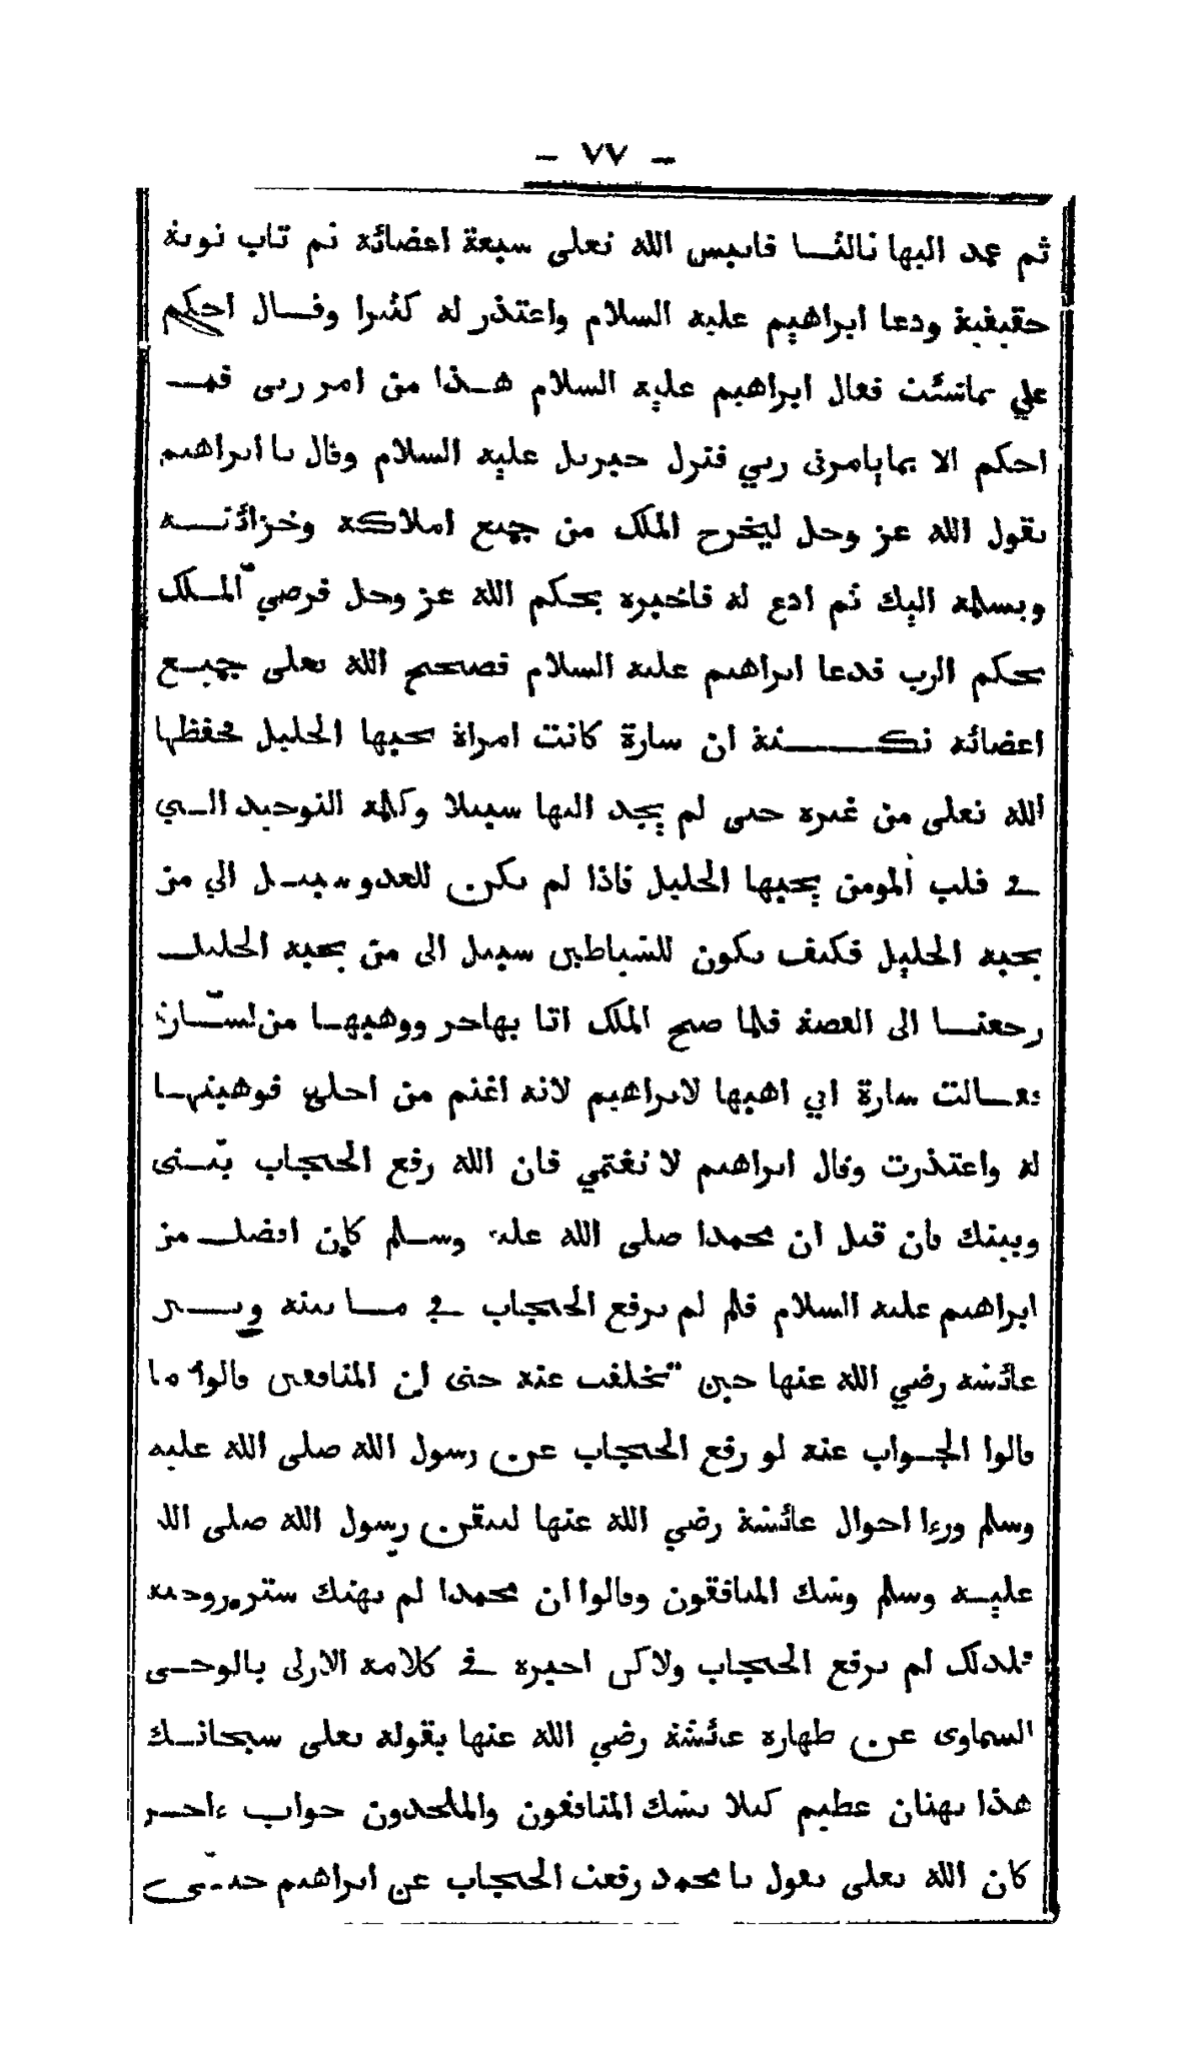 - ٧٧ -
ثم عمد اليها ثالثا فايبس الله تعلى سبعة اعضائه ثم تاب توبة
حقيقية ودعا ابراهيم عليه السلام واعتذر له كثيرا وقال احكم
علي بماشئت فقال ابراهيم عليه السلام هذا من امر ربى فمـــ
احكم الا بمايامرنى ربي فنزل جبريل عليه السلام وقال يا ابراهيم
يقول الله عز وجل ليخرج الملك من جميع املاكه وخزائنه
ويسلمه اليك ثم ادع له فاخبره بحكم الله عز وجل فرضي الملك
بحكم الرب فدعا ابراهيم عليه السلام فصحح الله تعلى جميع
اعضائه نكتة ان سارة كانت امراة يحبها الخليل فحفظها
الله تعلى من غيره حتى لم يجد اليها سبيلا وكلمة التوحيد التي
في قلب المومن يحبها الخليل فاذا لم يكن للعدو سبيل الي من
يحبه الخليل فكيف يكون للشياطين سبيل الى من يحبه الجليل
رجعنا الى القصة فلما صح الملك اتا بهاجر ووهبها من لسارة
فقالت سارة اني اهبها لابراهيم لانه اغتم من اجلي فوهبتها
له واعتذرت وقال ابراهيم لا تغتمي فان الله رفع الحجاب بيني
وبينك فان قيل ان محمدا صلى الله عليه وسلم كان افضل من
ابراهيم عليه السلام فلم لم يرفع الحجاب في ما بينه وبين
عائشة رضي الله عنها حين تخلفت عنه حتى ان المنافقين قالوا ما
قالوا الجواب عنه لو رفع الحجاب عن رسول الله صلى الله عليه
وسلم ورءا احوال عائشة رضي الله عنها لتيقن رسول الله صلى الله
عليه وسلم وشك المنافقون وقالوا ان محمدا لم يهتك ستر زوجته
فلذلك لم يرفع الحجاب ولاكن اخبره في كلامه الازلى بالوحى
السماوى عن طهارة عائشة رضي الله عنها بقوله تعلى سبحانك
هذا بهتان عظيم كيلا يشك المنافقون والملحدون جواب ءاخر
كان الله تعلى يقول يا محمد رفعت الحجاب عن ابراهيم حتى